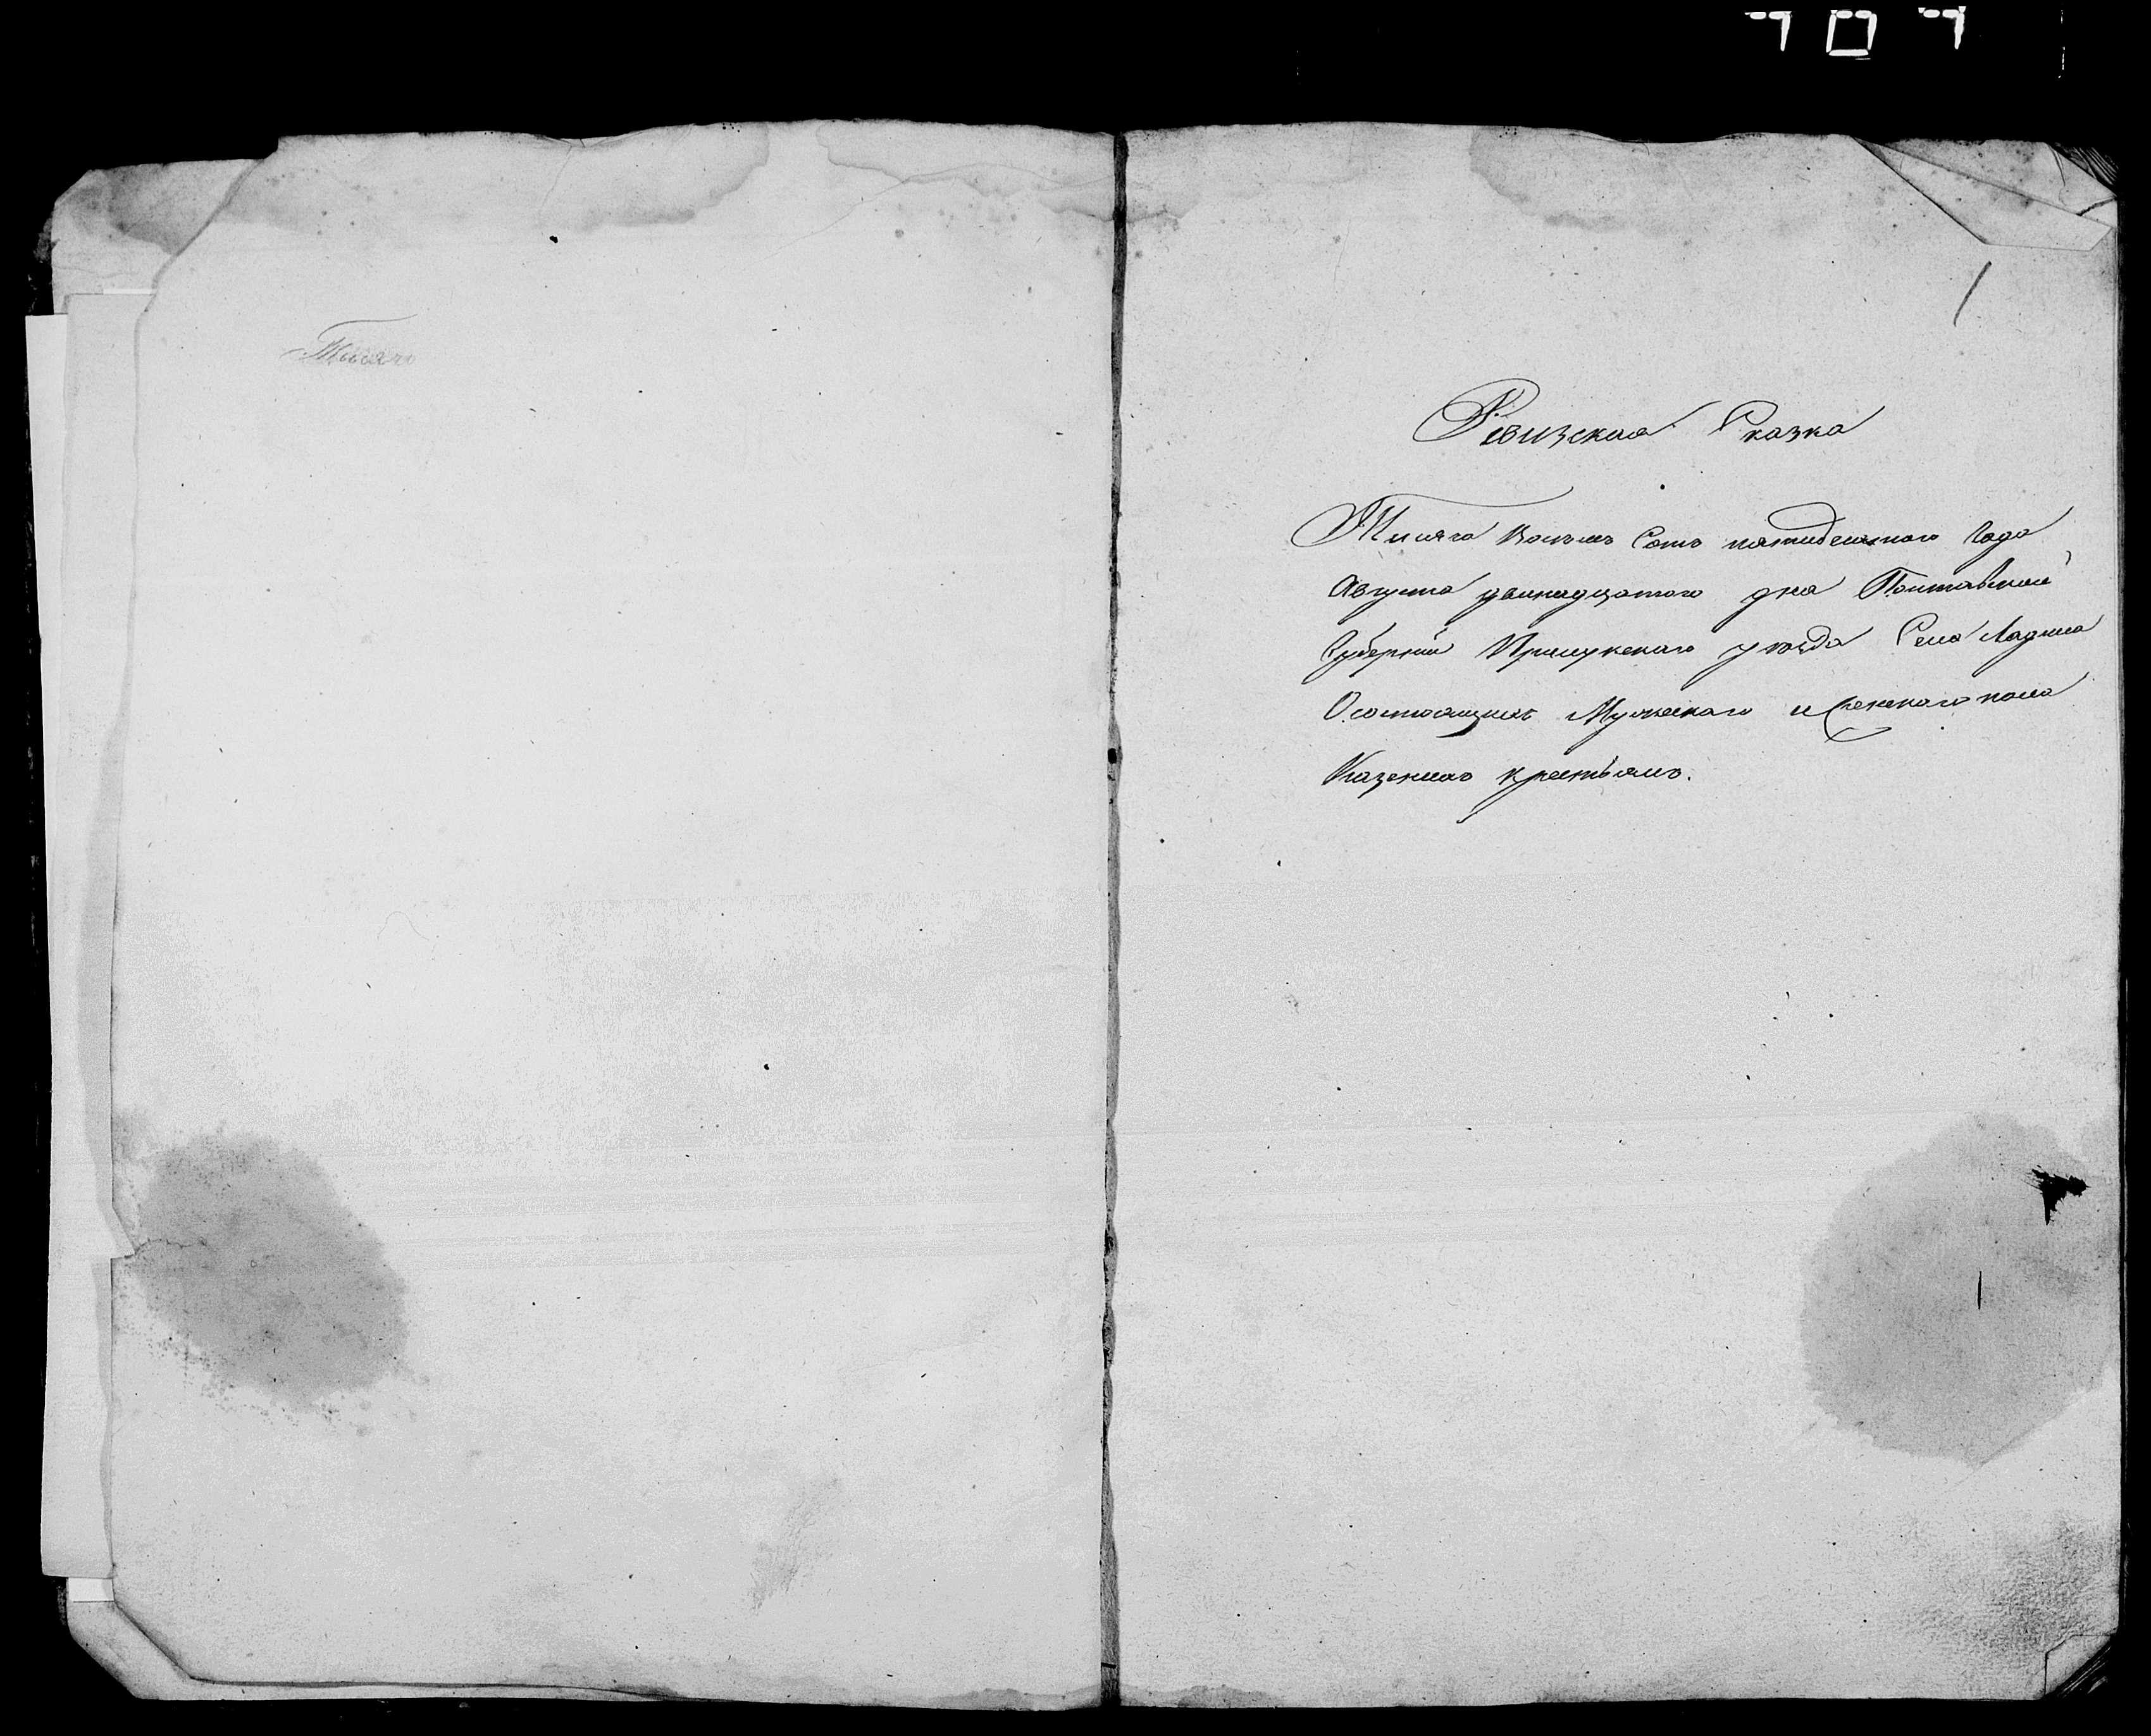 Тисяча
1
Ревизская Сказка
Тисяча Восьмъ Сотъ пятидесятого Года
Августа двенадцатого дня Полтавской
Губернии Прилукского уезда Села Ладина
О состоящихъ Мужескаго и Женскаго пола
Казенихъ крестьянъ.